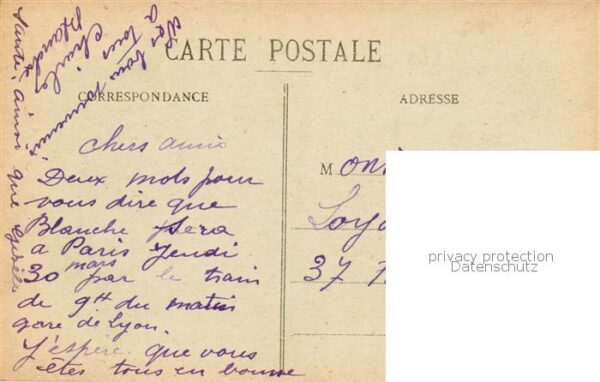 CARTE POSTALE
CORRESPONDANCE
ADRESSE
chers amis
Deux mots pour
vous dire que
Blanche sera
a Paris Jeudi
30 mars par le train
de 9H du matin
gare de Lyon.
J'espère que vous
êtes tous en bonne
santé, ainsi que
a tous
Blanche
M
37
privacy protection
Datenschutz